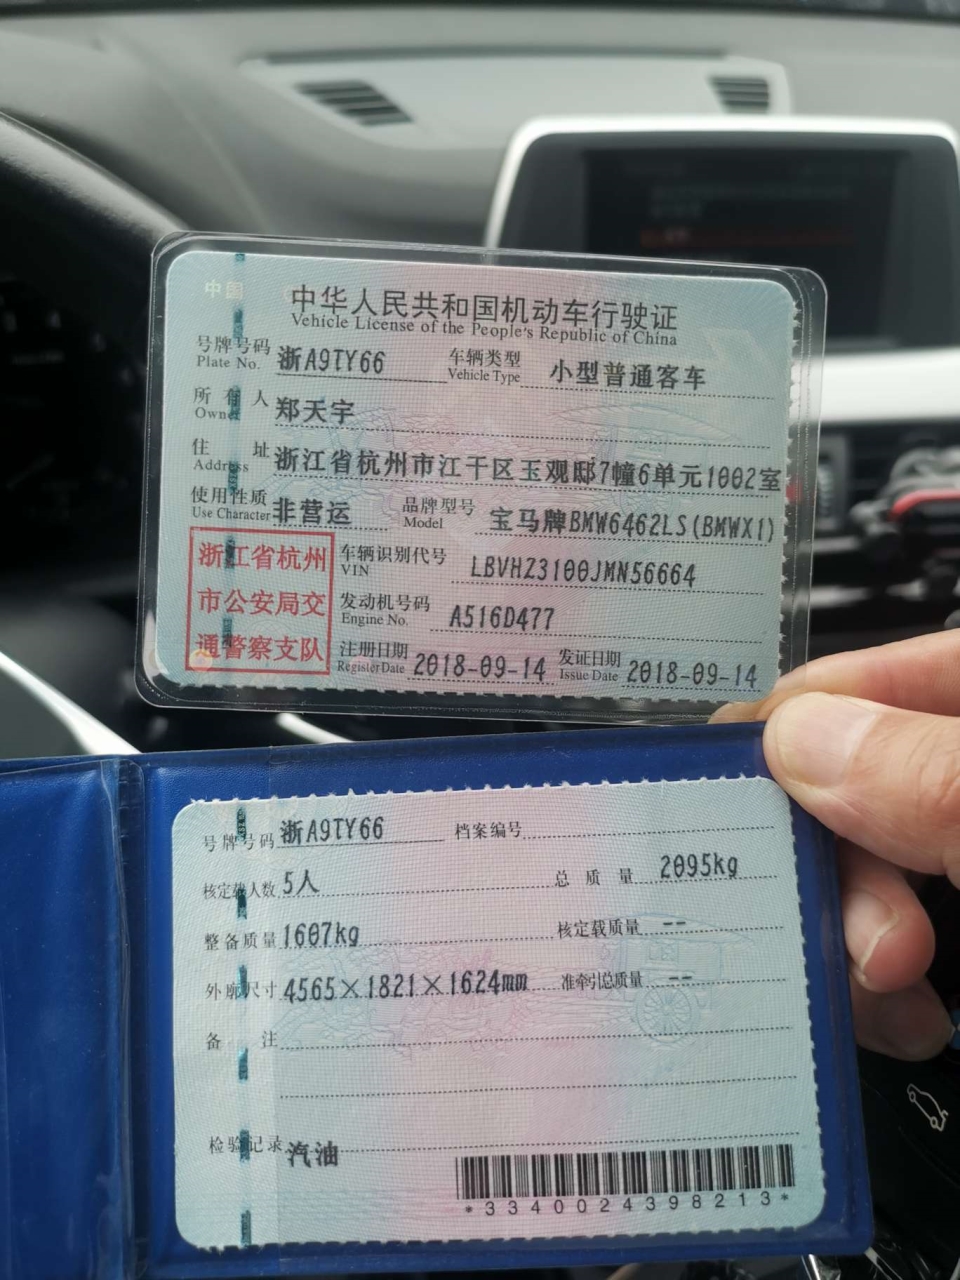 中国
中华人民共和国机动车行驶证
Vehicle License of the People's Republic of China
号牌号码 浙A9TY66 车辆类型 小型普通客车
Plate No. Vehicle Type
所有人 郑天宇
Owner
住址 浙江省杭州市江干区玉观邸7幢6单元1002室
Address
使用性质 非营运 品牌型号 宝马牌BMW6462LS(BMWX1)
Use Character Model
浙江省杭州 车辆识别代号 LBVHZ3100JMN56664
VIN
市公安局交 发动机号码 A516D477
Engine No.
通警察支队 注册日期 2018-09-14 发证日期 2018-09-14
Register Date Issue Date
号牌号码 浙A9TY66 档案编号
核定载人数 5人 总质量 2095kg
整备质量 1607kg 核定载质量 --
外廓尺寸 4565×1821×1624mm 准牵引总质量 --
备注
检验记录 汽油
*3340024398213*